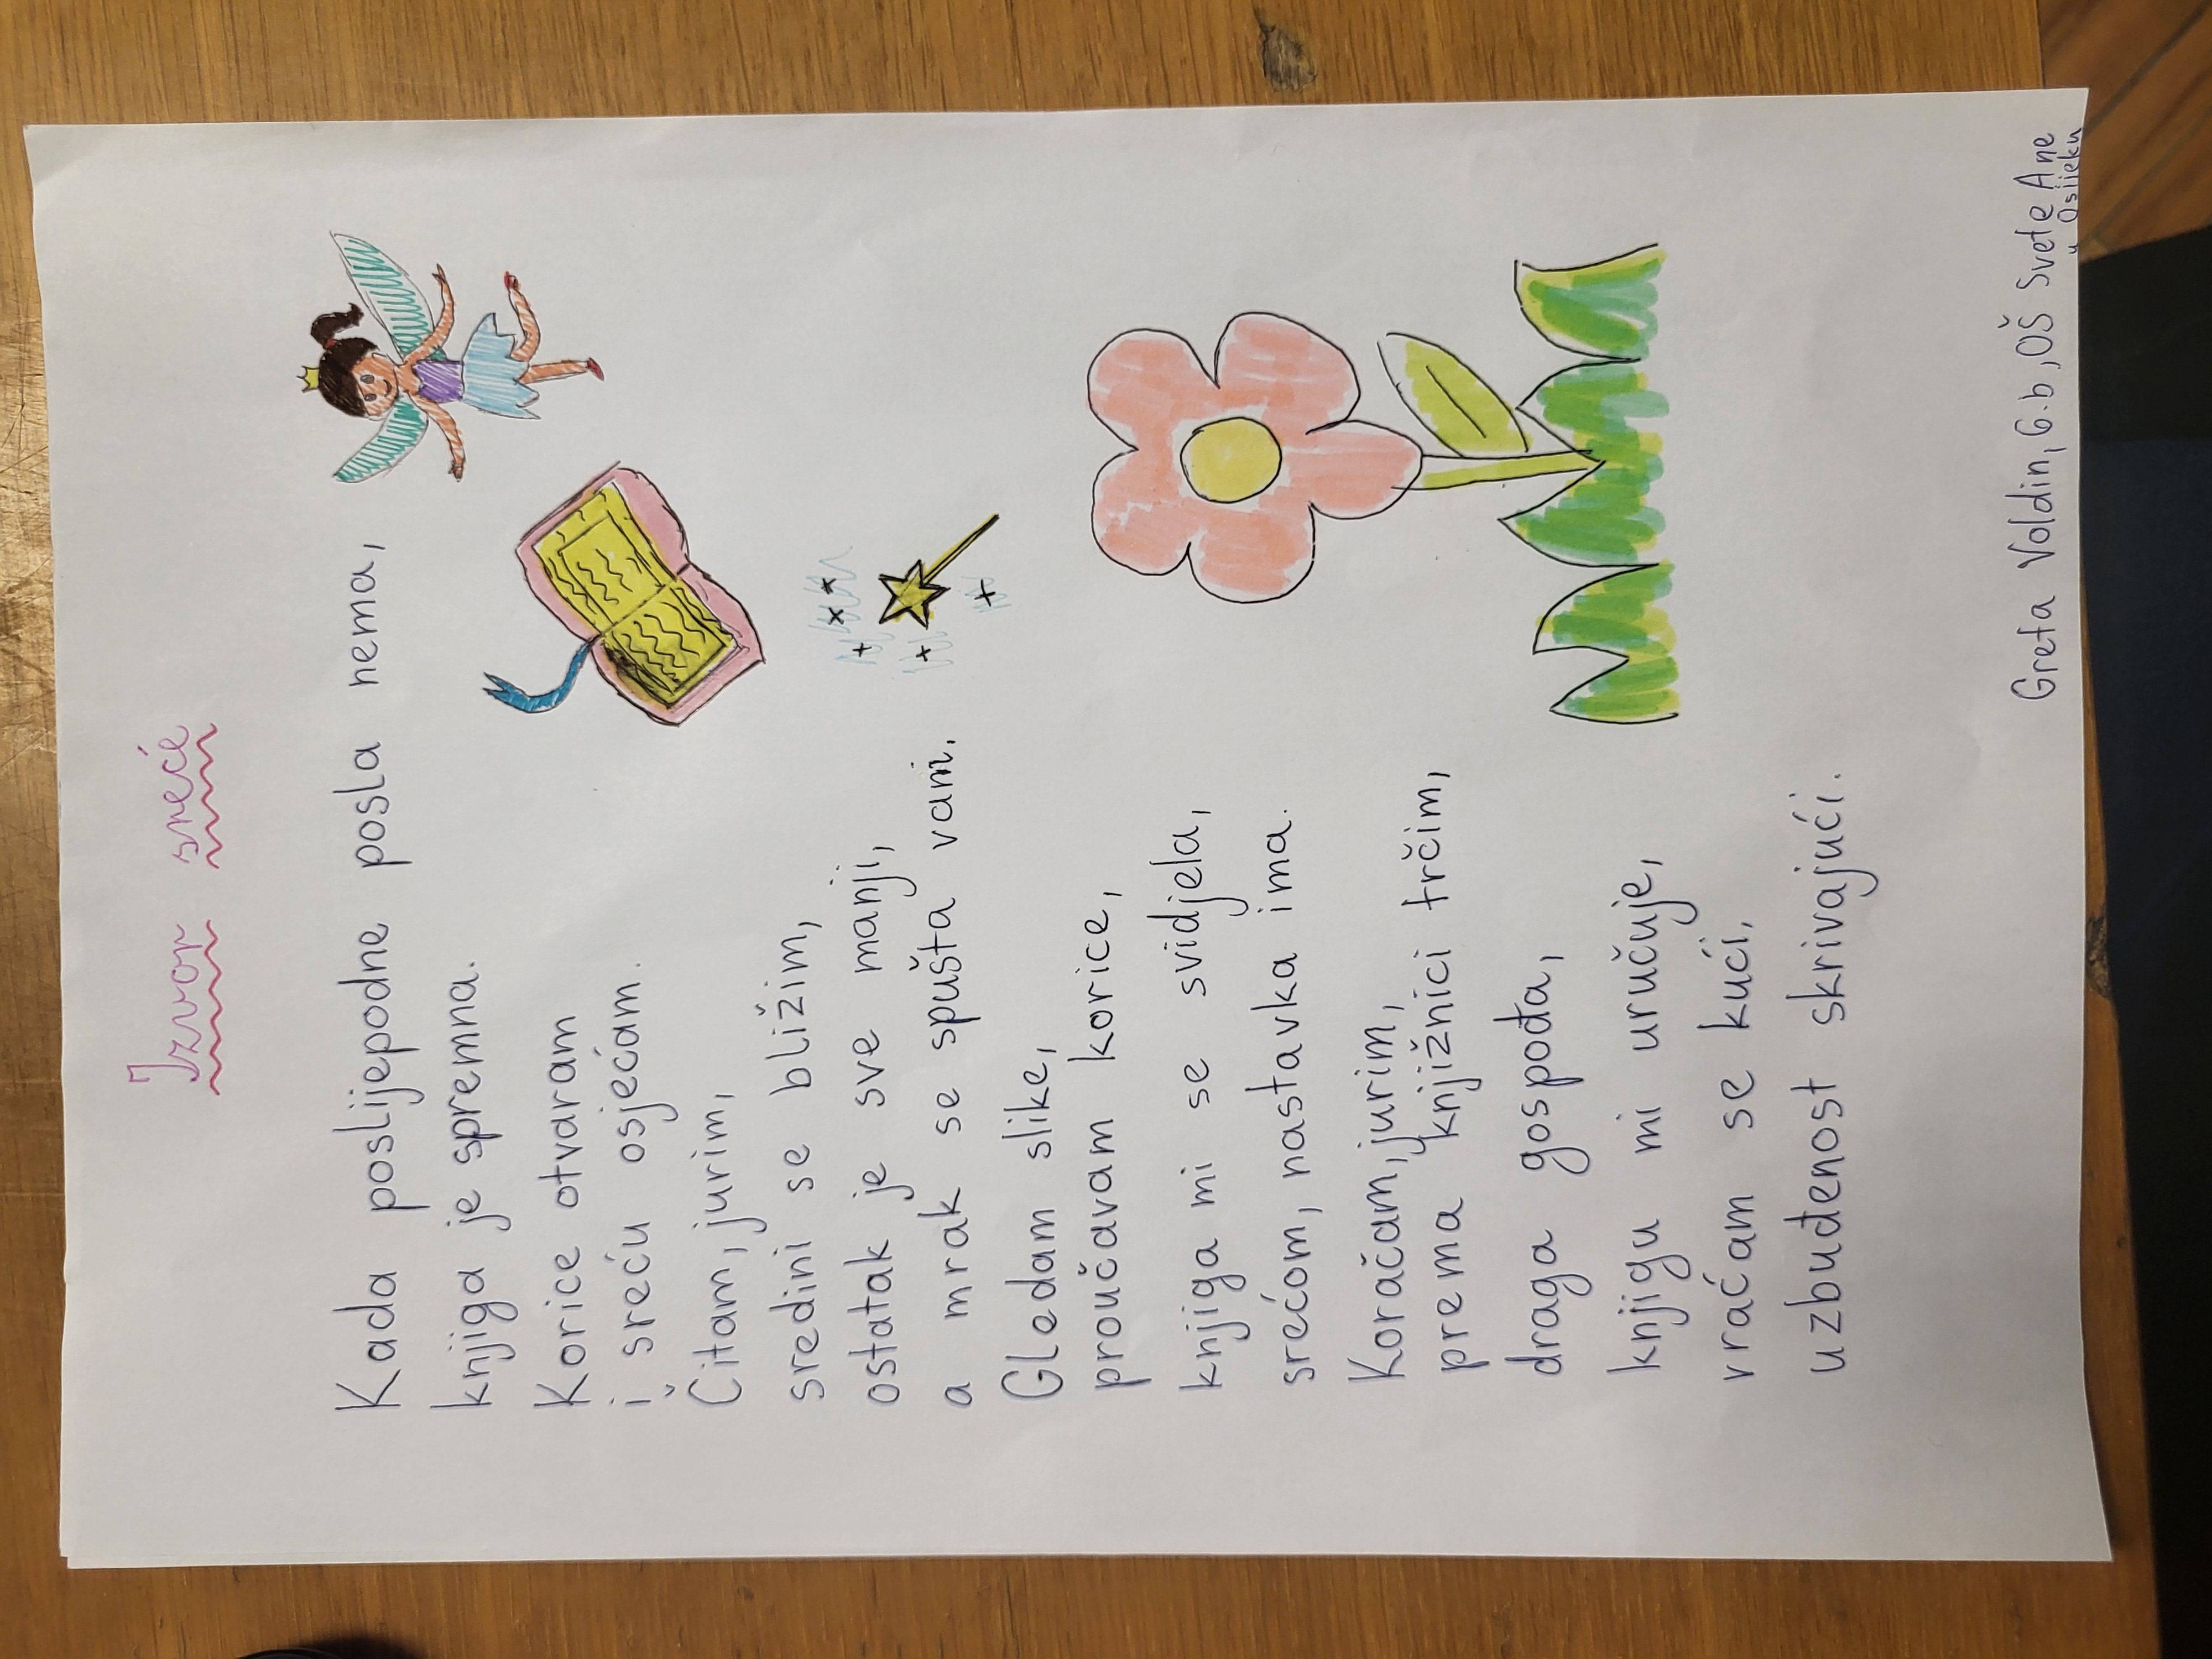 Izvor sreće
Kada poslijepodne posla nema,
knjiga je spremna.
Korice otvaram
i sreću osjećam.
Čitam, jurim,
sredini se bližim,
ostatak je sve manji,
a mrak se spušta vani.
Gledam slike,
proučavam korice,
knjiga mi se svidjela,
srećom, nastavka ima.
Koračam, jurim,
prema knjižnici trčim,
draga gospođa,
knjigu mi uručuje,
vraćam se kući,
uzbuđenost skrivajući.
Greta Voldin, 6.b, OŠ Svete Ane
u Osijeku